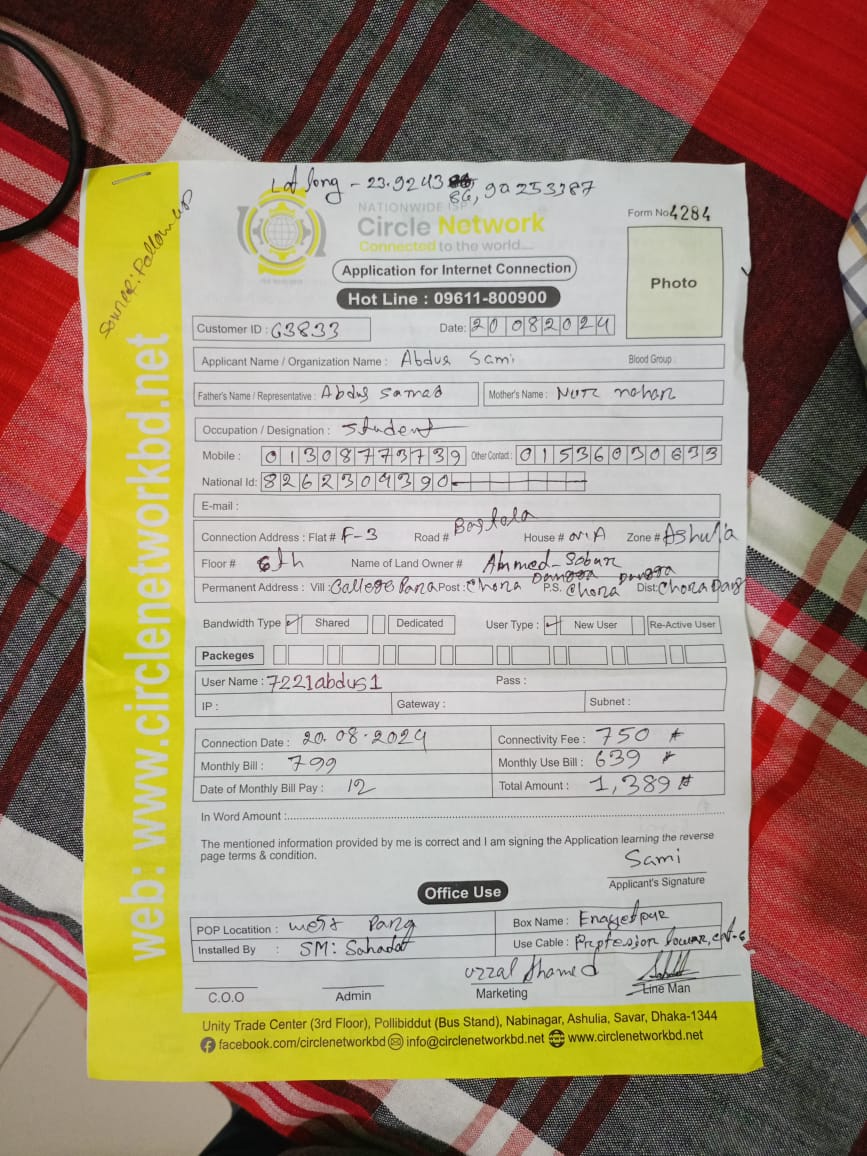 Lat long - 23.924386, 90253187
Source: Follow up
NATIONWIDE ISP
Circle Network
Connected to the world....
Form No 4284
Application for Internet Connection
Photo
Hot Line : 09611-800900
Customer ID : 63833
Date: 20 08 2024
Applicant Name / Organization Name : Abdus Sami
Blood Group :
Father's Name / Representative : Abdus Samad
Mother's Name : Nur nahar
Occupation / Designation : Student
Mobile : 01308773739 Other Contact : 01536030633
National Id: 8262304390
E-mail :
Connection Address : Flat # F-3 Road # House # Zone # Ashulia
Floor # 6th Name of Land Owner # Ahmed Sobur
Permanent Address : Vill : College Para Post : Chona Dangga P.S. Chona Dangga Dist: Chona Dang
Bandwidth Type ✓ Shared Dedicated User Type : ✓ New User Re-Active User
Packeges
User Name : 7221abdus1 Pass :
IP : Gateway : Subnet :
Connection Date : 20.08.2024 Connectivity Fee : 750
Monthly Bill : 799 Monthly Use Bill : 639
Date of Monthly Bill Pay : 12 Total Amount : 1,389
In Word Amount :
The mentioned information provided by me is correct and I am signing the Application learning the reverse
page terms & condition.
Sami
Applicant's Signature
Office Use
POP Locatition : West Para Box Name : Enayetpur
Installed By : SM: Sahadat Use Cable : cat-6
uzzal Ahamed
C.O.O Admin Marketing Line Man
Unity Trade Center (3rd Floor), Pollibiddut (Bus Stand), Nabinagar, Ashulia, Savar, Dhaka-1344
facebook.com/circlenetworkbd info@circlenetworkbd.net www.circlenetworkbd.net
web: www.circlenetworkbd.net